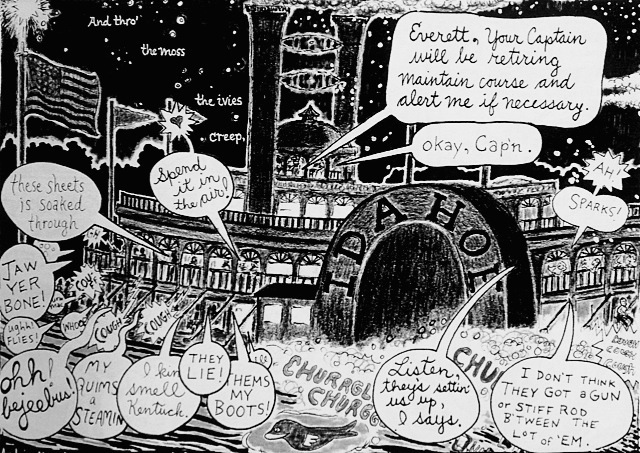 And thro'
the moss
the ivies
creep,
Everett, Your Captain
will be retiring
maintain course and
alert me if necessary.
okay, Cap'n.
Spend
it in
the air!
AH!
SPARKS!
these sheets
is soaked
through
JAW
YER
BONE!
ughh!
FLIES!
ohh!
bejeebus!
WHOO
COUGH
COUGH
MY
QUIMS
A
STEAMIN
I kin
smell
Kentuck.
THEY
LIE!
THEMS
MY
BOOTS!
IDA HOE
CHURGGL
CHURGG
CHU
Listen,
they's settin'
us up,
I says.
I DON'T THINK
THEY GOT A GUN
OR STIFF ROD
B'TWEEN THE
LOT of 'EM.